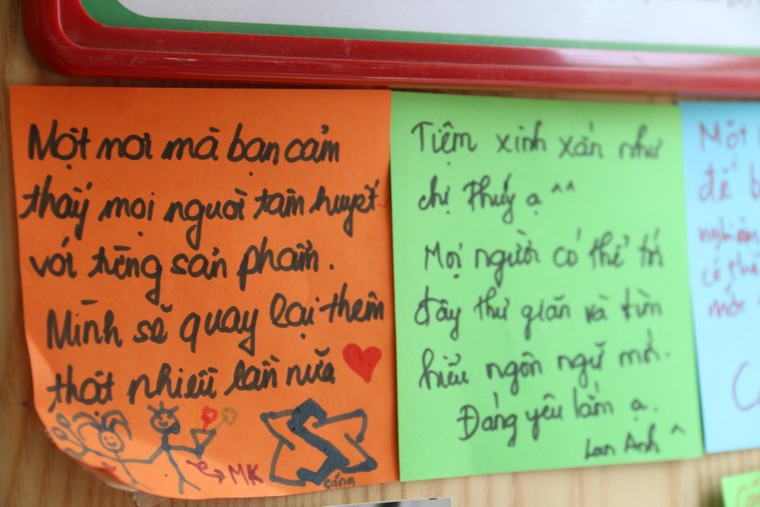 Một nơi mà bạn cảm
thấy mọi người tâm huyết
với từng sản phẩm.
Mình sẽ quay lại thêm
thật nhiều lần nữa
MK
S
sáng
Tiệm xinh xắn như
chị Thúy ạ ^^
Mọi người có thể tới
đây thư giãn và tìm
hiểu ngôn ngữ mới.
Đáng yêu lắm ạ.
Lan Anh ^
Một
để b
nghiệm
có thể
mới
C